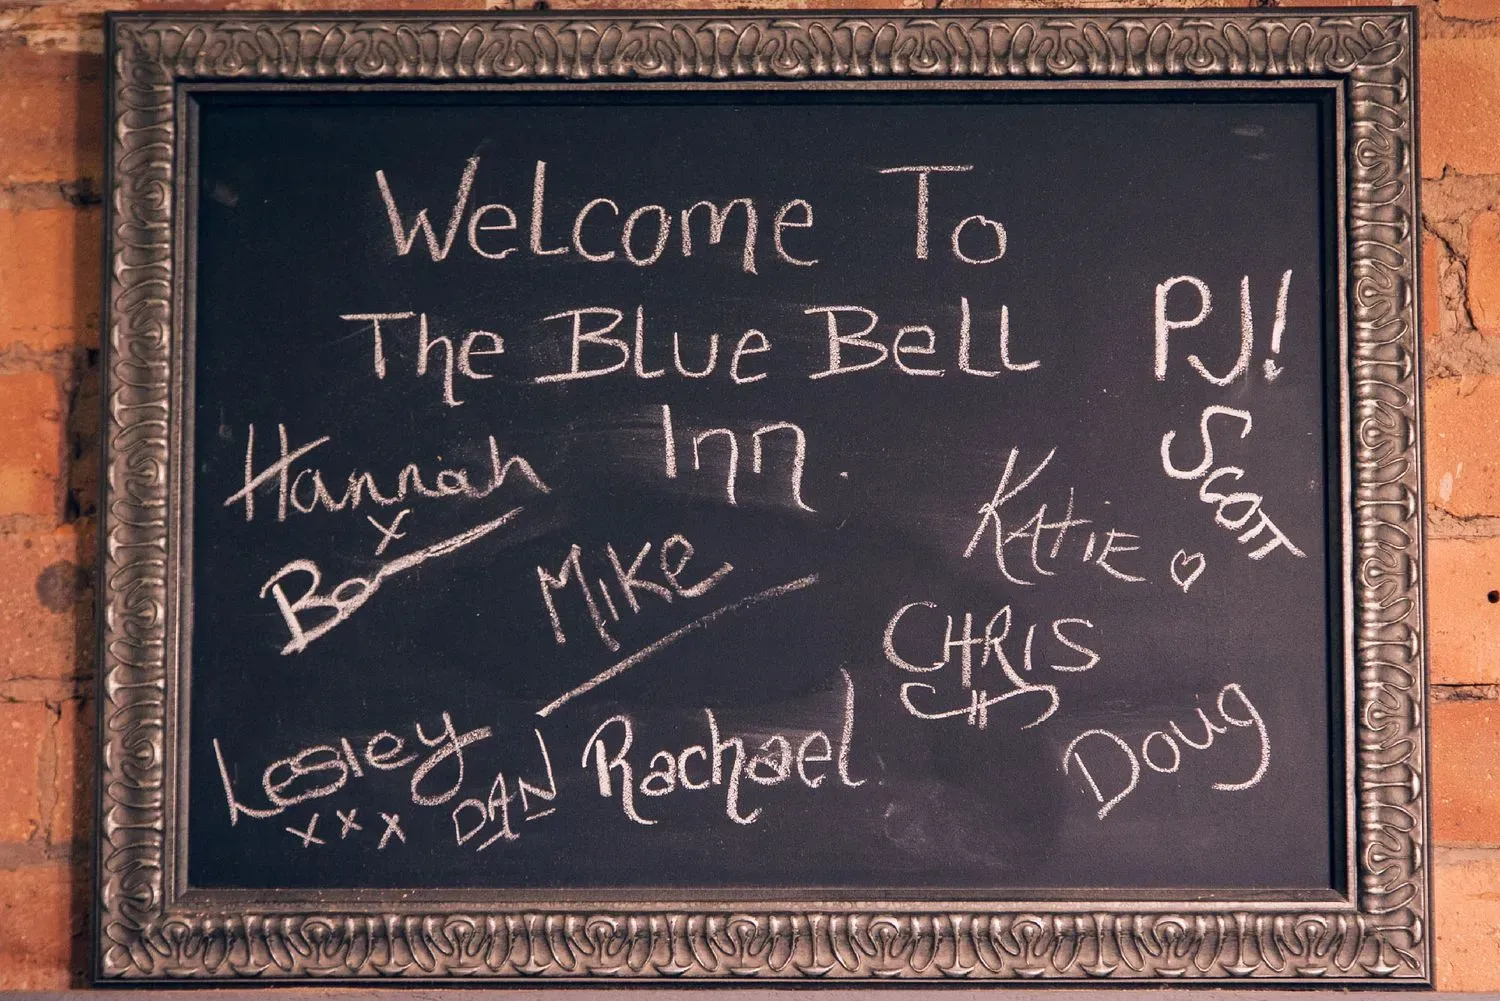 Welcome To
The Blue Bell
Inn.
PJ!
Scott
Hannah
x
Bo
Mike
Katie ♡
CHRIS
Lesley
x x x
DAN
Rachael
Doug